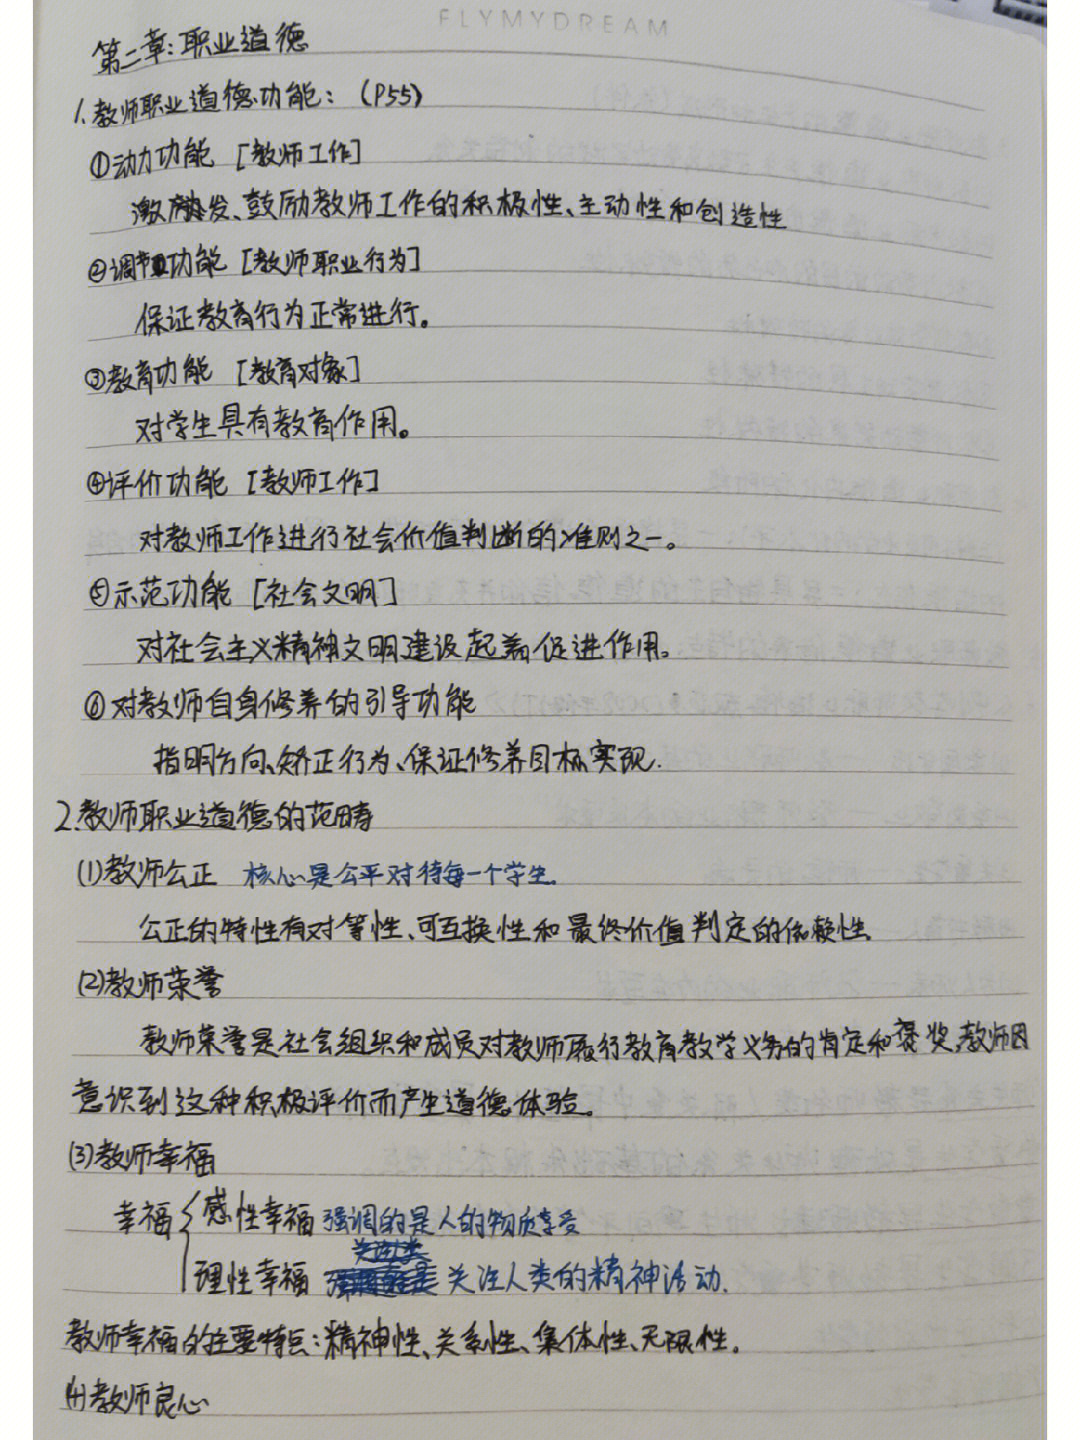 FLYMYDREAM
第二章:职业道德
1.教师职业道德功能:(P55)
①动力功能 [教师工作]
激发、鼓励教师工作的积极性、主动性和创造性
②调节功能 [教师职业行为]
保证教育行为正常进行。
③教育功能 [教育对象]
对学生具有教育作用。
④评价功能 [教师工作]
对教师工作进行社会价值判断的准则之一。
⑤示范功能 [社会文明]
对社会主义精神文明建设起着促进作用。
⑥对教师自身修养的引导功能
指明方向、矫正行为、保证修养目标实现.
2.教师职业道德的范畴
(1)教师公正 核心是公平对待每一个学生.
公正的特性有对等性、可互换性和最终价值判定的依赖性
(2)教师荣誉
教师荣誉是社会组织和成员对教师履行教育教学义务的肯定和褒奖,教师因
意识到这种积极评价而产生道德体验。
(3)教师幸福
幸福{感性幸福 强调的是人的物质享受
理性幸福 关注人类的精神活动.
教师幸福的主要特点:精神性、关系性、集体性、无限性。
(4)教师良心